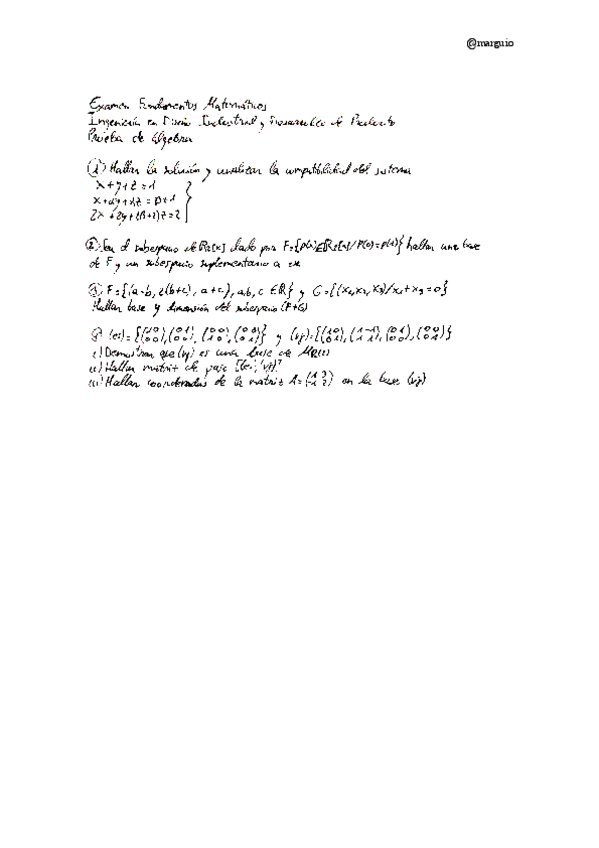 @marguio
Examen Fundamentos Matemáticos
Ingeniería en Diseño Industrial y Desarrollo de Producto
Prueba de Algebra
① Hallar la solución y analizar la compatibilidad del sistema
x+y+z=1
x+αy+z=β+1
2x+2y+(β+2)z=2
② Sea el subespacio de R₂[x] dado por F={p(x)∈R₂[x]/p(0)=p(1)} hallar una base
de F y un subespacio suplementario a
③ F={(a-b, 2(b+c), a+c), a,b,c ∈R} y G={(x₁,x₂,x₃)/x₁+x₃=0}
Hallar base y dimensión del subespacio (F+G)
y
i) Demostrar que (vj) es una base de
ii) Hallar matriz de paso
iii) Hallar coordenadas de la matriz A= en la base (vj)